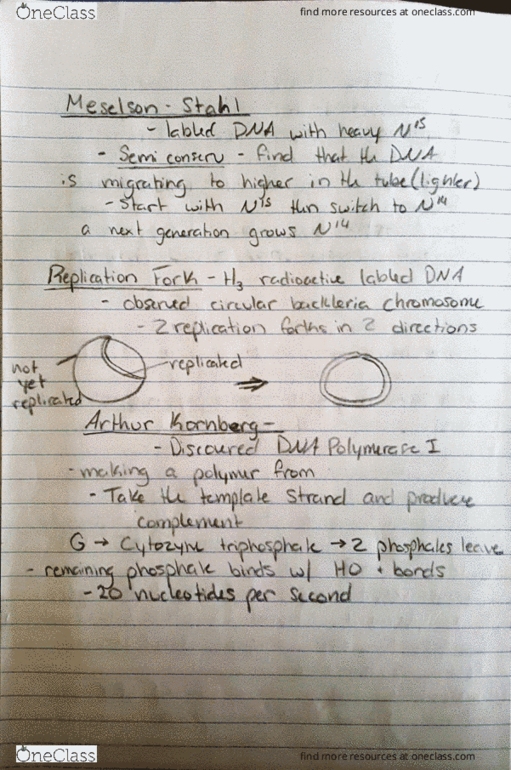 OneClass
find more resources at oneclass.com
Meselson - Stahl
- labled DNA with heavy N15
- Semi conserv - find that the DNA
is migrating to higher in the tube (lighter)
- Start with N15 then switch to N14
a next generation grows N14
Replication Fork - H3 radioactive labled DNA
- observed circular backteria chromosome
- 2 replication forks in 2 directions
not yet replicated
replicated
Arthur Kornberg -
- Discovred DNA Polymerase I
- making a polymer from
- Take the template strand and produce
complement
G → Cytozyne triphosphate → 2 phosphates leave
- remaining phosphate binds w/ HO + bonds
- 20 nucleotides per second
OneClass
find more resources at oneclass.com